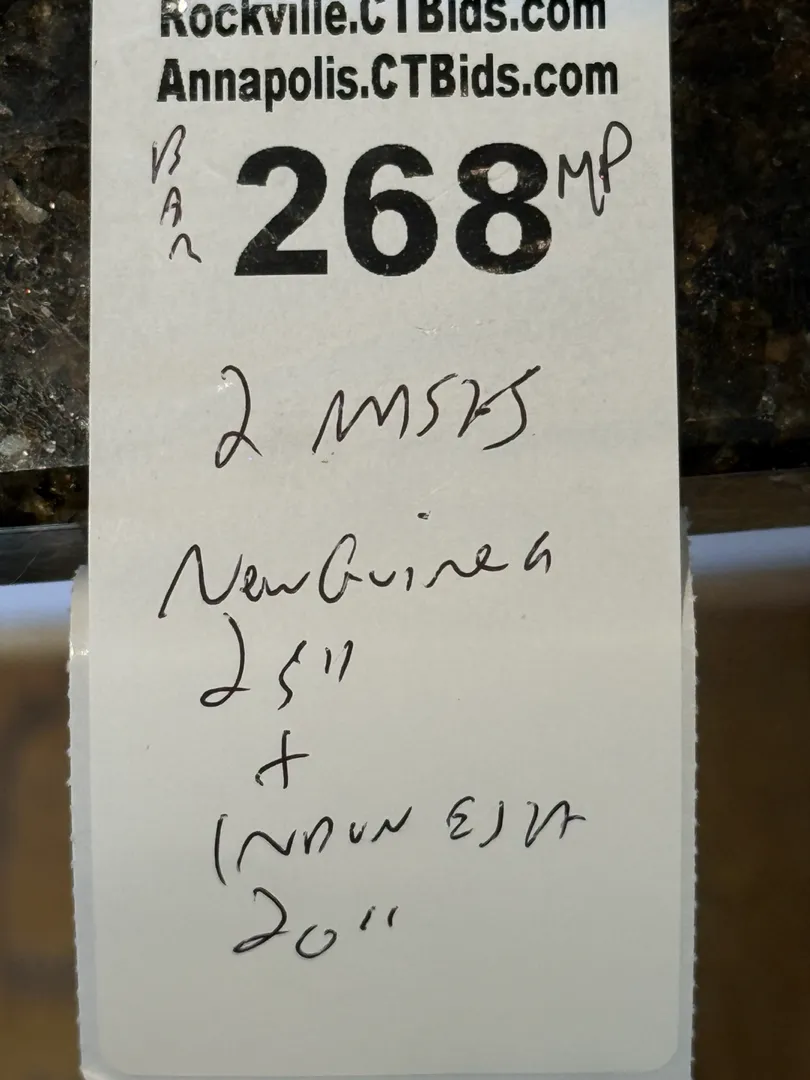 Rockville.CTBids.com
Annapolis.CTBids.com
BAR 268 MP
2 MASKS
New Guinea
25"
+
INDONESIA
20"